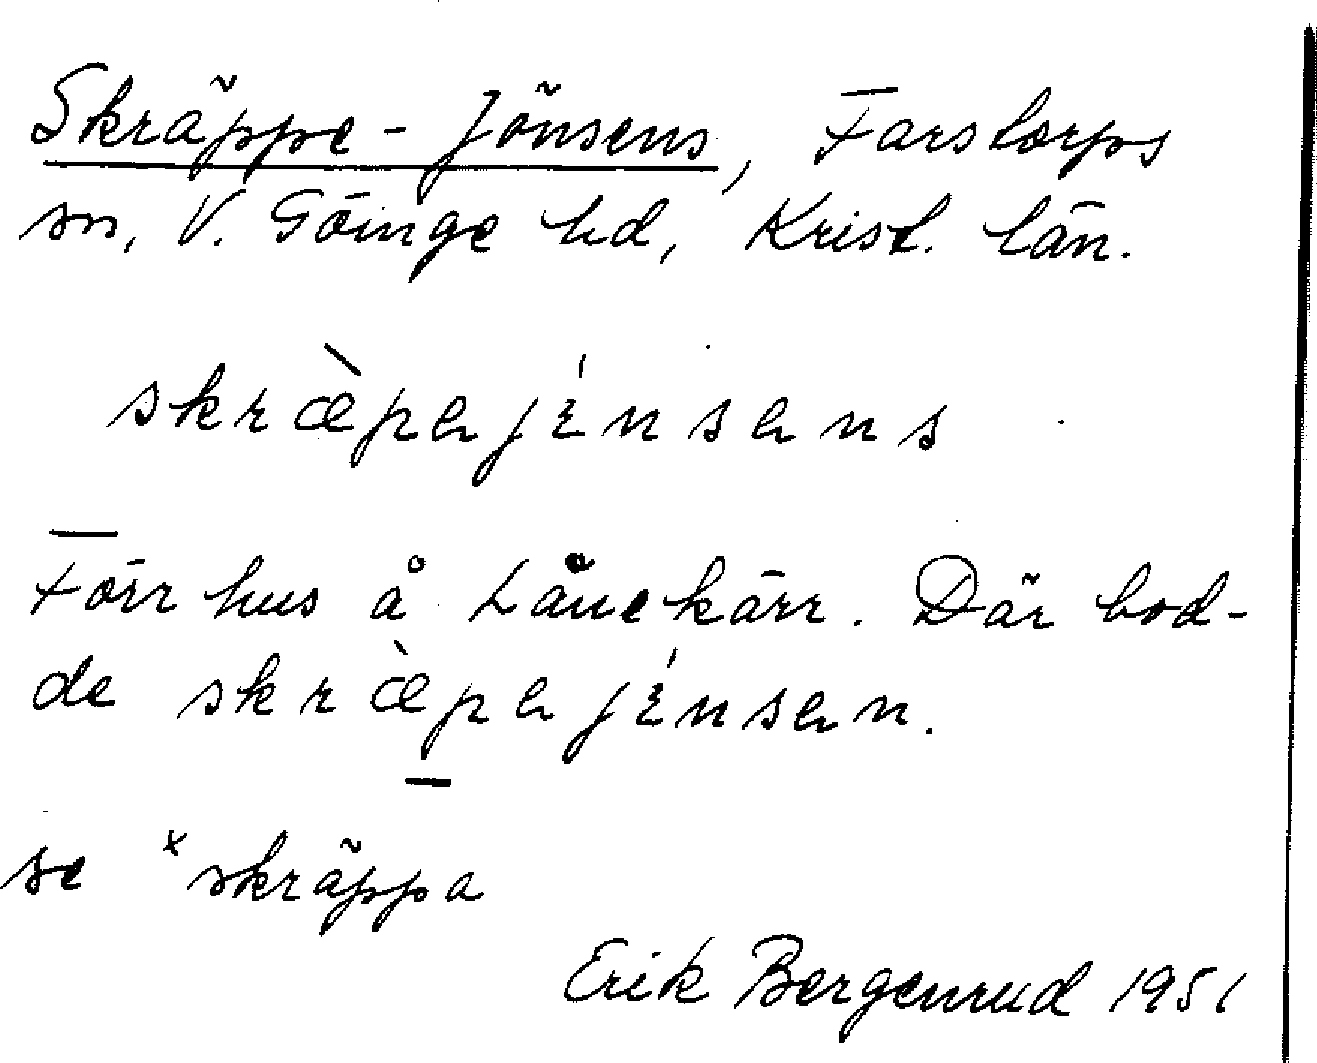 Skräppe-Jönsens, Farstorps
sn, V. Göinge hd, Krist. län.
skræ̀pəjɛ́nsəns
Förr hus å Lånekärr. Där bod-
de skræ̀pəjɛ́nsən.
se ˣskräppa
Erik Bergenrud 1951